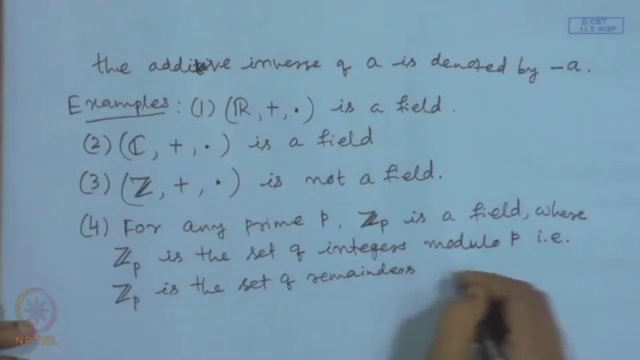 © CET
I.I.T. KGP
the additive inverse of a is denoted by -a.
Examples: (1) (ℝ, +, ·) is a field.
(2) (ℂ, +, ·) is a field
(3) (ℤ, +, ·) is not a field.
(4) For any prime p, ℤp is a field, where
ℤp is the set of integers modulo p i.e.
ℤp is the set of remainders
NPTEL